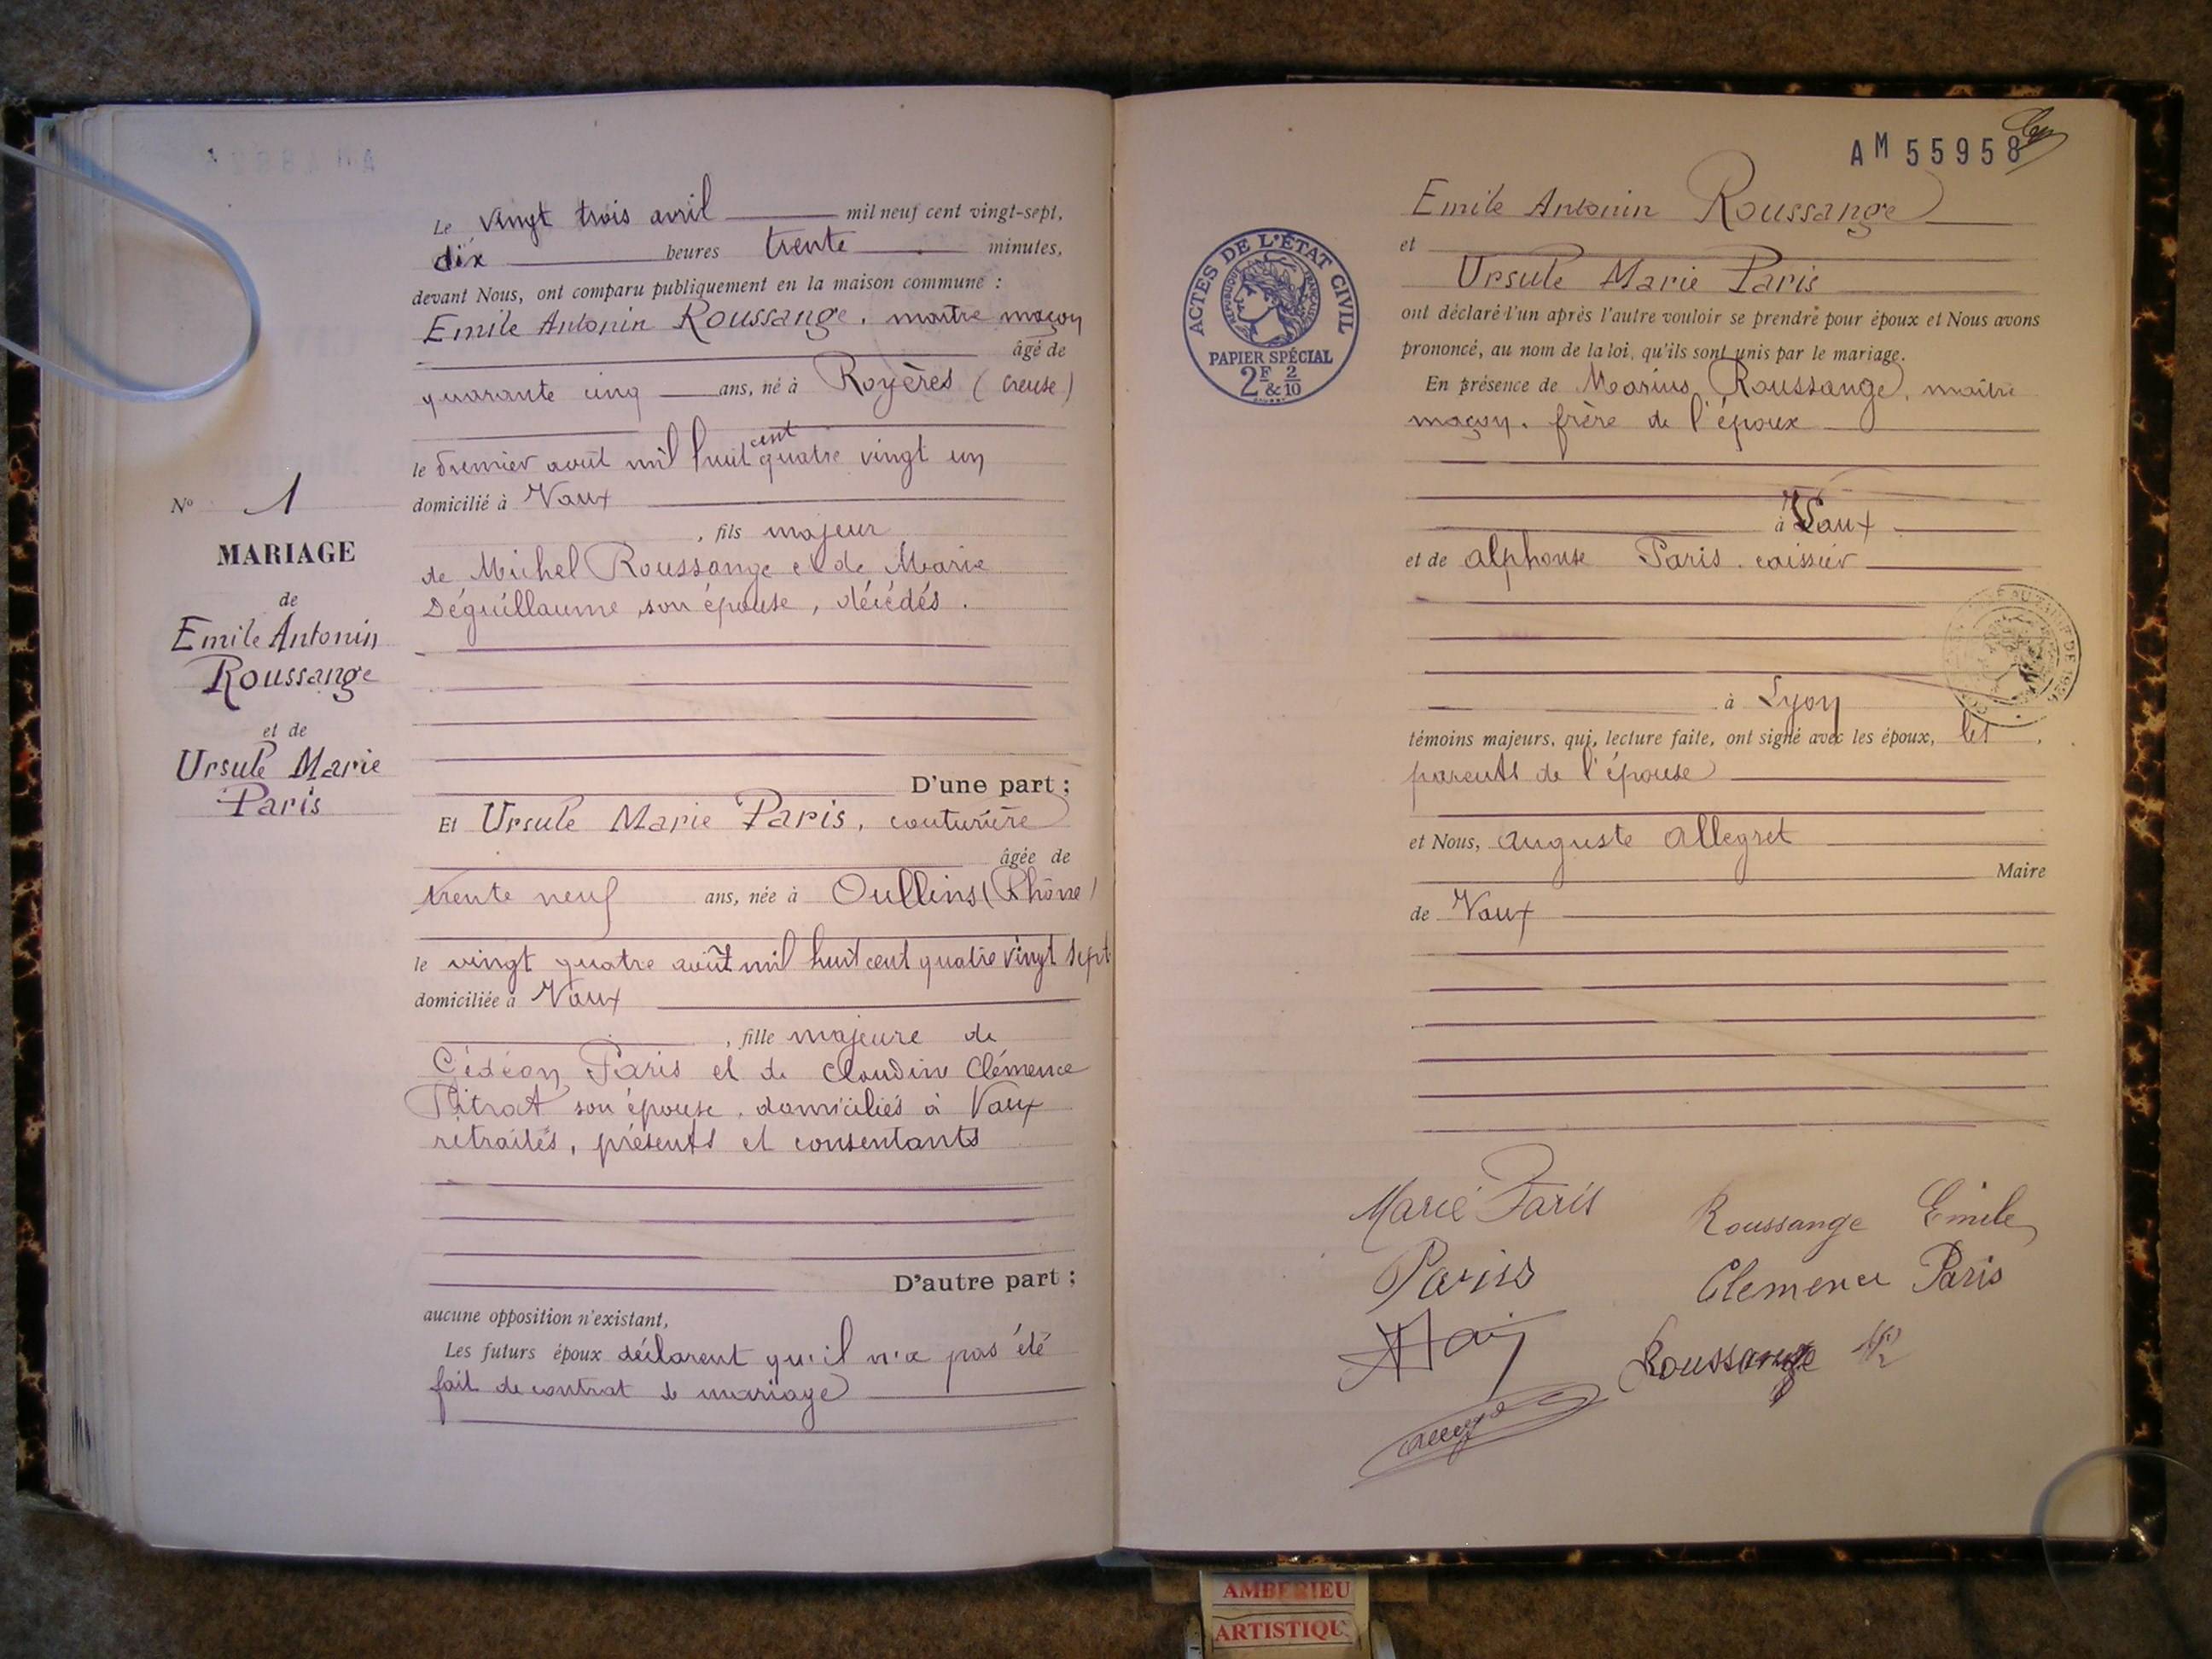 Le vingt trois avril mil neuf cent vingt-sept,
dix heures trente minutes,
devant Nous, ont comparu publiquement en la maison commune :
Emile Antonin Roussange, maître maçon
âgé de
quarante cinq ans, né à Royères (Creuse)
cent
le premier août mil huit quatre vingt un
domicilié à Vaux
, fils majeur
de Michel Roussange et de Marie
Déguillaume son épouse, décédés.
D'une part ;
Et Ursule Marie Paris, couturière
âgée de
trente neuf ans, née à Oullins (Rhône)
le vingt quatre août mil huit cent quatre vingt sept
domiciliée à Vaux
, fille majeure de
Gédéon Paris et de Claudine Clémence
Pitrat son épouse, domiciliés à Vaux
retraités, présents et consentants
D'autre part ;
aucune opposition n'existant,
Les futurs époux déclarent qu'il n'a pas été
fait de contrat de mariage
No 1
MARIAGE
de
Emile Antonin
Roussange
et de
Ursule Marie
Paris
AM 55958
Emile Antonin Roussange
et
Ursule Marie Paris
ont déclaré l'un après l'autre vouloir se prendre pour époux et Nous avons
prononcé, au nom de la loi, qu'ils sont unis par le mariage.
En présence de Marius Roussange, maître
maçon, frère de l'époux
à Vaux
et de Alphonse Paris, caissier
à Lyon
témoins majeurs, qui, lecture faite, ont signé avec les époux, les
parents de l'épouse
et Nous, Auguste Allegret
Maire
de Vaux
Marie Paris Roussange Emile
Pariss Clemence Paris
Roussange
ACTES DE L'ÉTAT CIVIL
RÉPUBLIQUE FRANÇAISE
PAPIER SPÉCIAL
2F & 2/10
AMBERIEU
ARTISTIQU